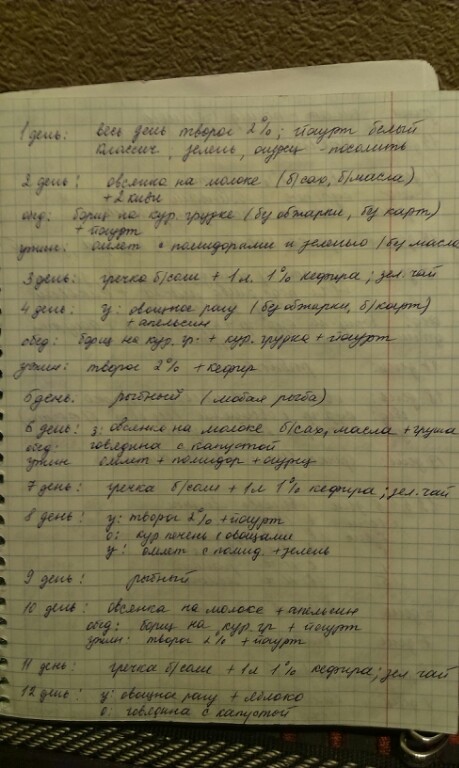 1 день: весь день творог 2%; йогурт белый
классич, зелень, огурец - посолить
2 день: овсянка на молоке (б/сах, б/масла)
+ 2 киви
обед: борщ на кур. грудке (без обжарки, без карт)
+ йогурт
ужин: омлет с помидорами и зеленью (без масла
3 день: гречка б/соли + 1л 1% кефира; зел. чай
4 день: у: овощное рагу (без обжарки, б/карт)
+ апельсин
обед: борщ на кур. гр. + кур. грудка + йогурт
ужин: творог 2% + кефир
5 день. рыбный (любая рыба)
6 день: з: овсянка на молоке б/сах, масла + груша
обед: говядина с капустой
ужин омлет + помидор + огурец
7 день: гречка б/соли + 1л 1% кефира; зел. чай
8 день: у: творог 2% + йогурт
о: кур печень с овощами
у: омлет с помид. + зелень
9 день: рыбный
10 день: овсянка на молоке + апельсин
обед: борщ на кур. гр + йогурт
ужин: творог 2% + йогурт
11 день: гречка б/соли + 1л 1% кефира; зел чай
12 день: у: овощное рагу + яблоко
о: говядина с капустой